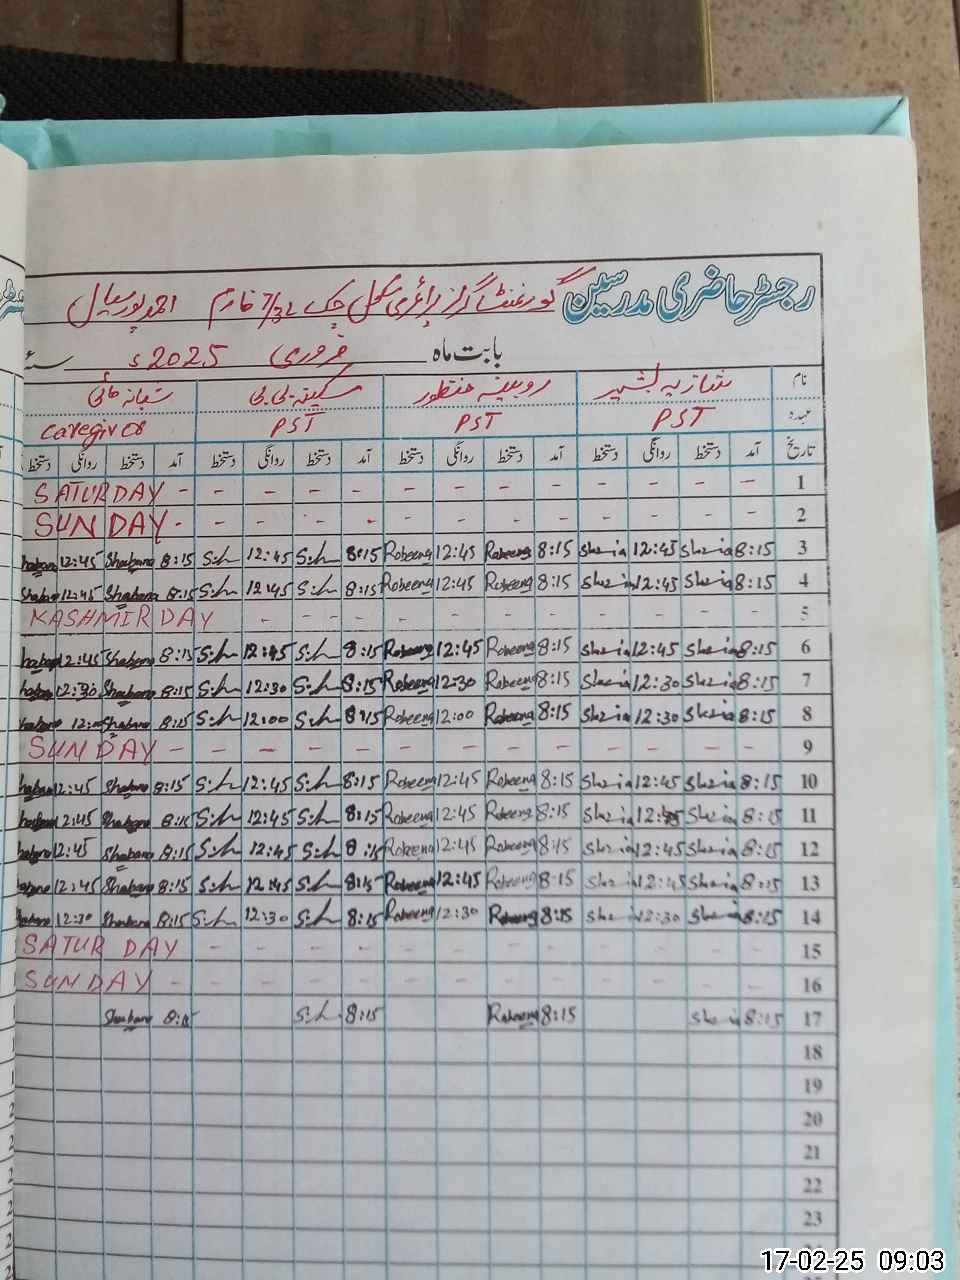 رجسٹر حاضری مدرسین گورنمنٹ گرلز پرائمری سکول چک 7/3L فارم احمد پور سیال
بابت ماہ فروری 2025 ء
نام شازیہ بشیر روبینہ منظور سکینہ بی بی شبانہ
عہدہ PST PST PST caregiver
تاریخ آمد دستخط روانگی دستخط آمد دستخط روانگی دستخط آمد دستخط روانگی دستخط آمد دستخط روانگی دستخط
SATURDAY - - - - - - - - - - - - - 1
SUN DAY - - - - - - - - - - - - - 2
12:45 Shabana 8:15 S:h 12:45 S:h 8:15 Robeena 12:45 Robeena 8:15 Shazia 12:45 Shazia 8:15 3
12:45 Shabana 8:15 S:h 12:45 S:h 8:15 Robeena 12:45 Robeena 8:15 Shazia 12:45 Shazia 8:15 4
KASHMIR DAY - - - - - - - - - - - - 5
12:45 Shabana 8:15 S:h 12:45 S:h 8:15 Robeena 12:45 Robeena 8:15 Shazia 12:45 Shazia 8:15 6
12:30 Shabana 8:15 S:h 12:30 S:h 8:15 Robeena 12:30 Robeena 8:15 Shazia 12:30 Shazia 8:15 7
Shabana 8:15 S:h 12:00 S:h 8:15 Robeena 12:00 Robeena 8:15 Shazia 12:30 Shazia 8:15 8
SUN DAY - - - - - - - - - - - - - 9
12:45 Shabana 8:15 S:h 12:45 S:h 8:15 Robeena 12:45 Robeena 8:15 Shazia 12:45 Shazia 8:15 10
12:45 Shabana 8:15 S:h 12:45 S:h 8:15 Robeena 12:45 Robeena 8:15 Shazia 12:45 Shazia 8:15 11
12:45 Shabana 8:15 S:h 12:45 S:h 8:15 Robeena 12:45 Robeena 8:15 Shazia 12:45 Shazia 8:15 12
12:45 Shabana 8:15 S:h 12:45 S:h 8:15 Robeena 12:45 Robeena 8:15 Shazia 12:45 Shazia 8:15 13
12:30 Shabana 8:15 S:h 12:30 S:h 8:15 Robeena 12:30 Robeena 8:15 Shazia 12:30 Shazia 8:15 14
SATUR DAY - - - - - - - - - - - - 15
SUN DAY - - - - - - - - - - - - 16
Shabana 8:15 S:h 8:15 Robeena 8:15 Shazia 8:15 17
18
19
20
21
22
23
17-02-25 09:03